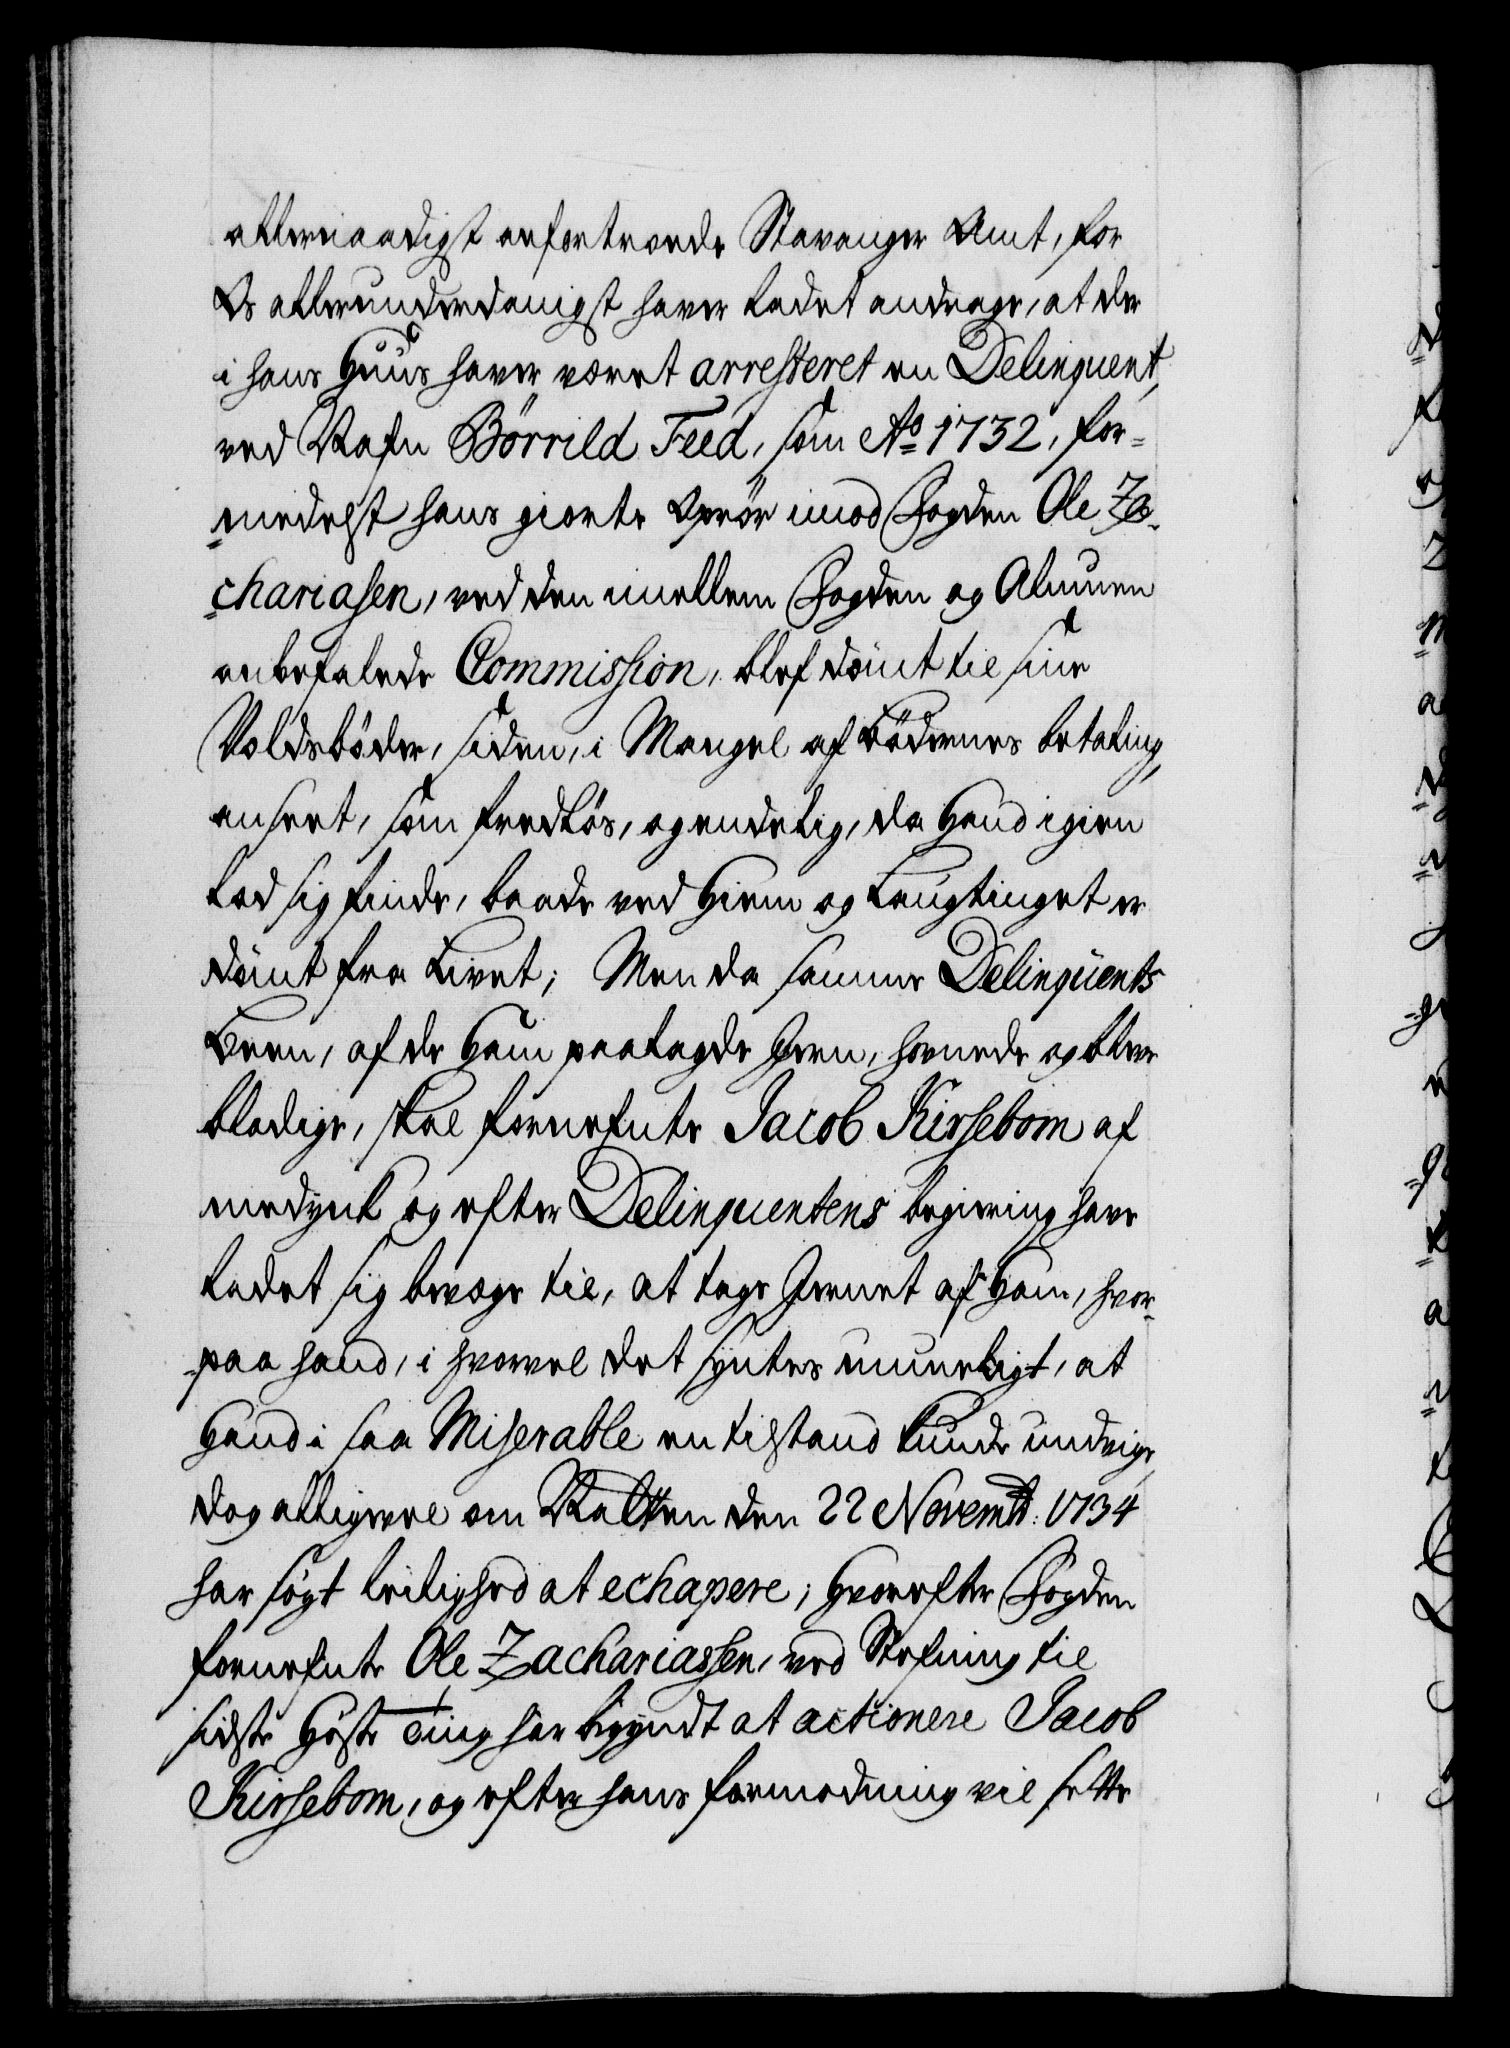 allernaadigst anfortroede Stavanger Amt, for
Os allerunderdanigst haver ladet andrage, at der
i hans Huus haver været arresteret en Delinquent,
ved Nafn Börrild Feed, som Ao 1732, for=
=medelst hans giorte Oprör imod Fogden Ole Za=
=chariasen, ved den imellem Fogden og Almuen
anbefalede Commission, blef dömt til sine
Voldsböder, siden, i Mangel af Bödernes betaling,
anseet, som fredlös, og endelig, da Hand igien
lod sig finde, baade ved Hiem og Laugtinget er
dömt fra Livet; Men da samme Delinqüents
Been, af de Ham paalagde Jern, hovnede og bleve
blodige, skal fornefnte Jacob Kirsebom af
medynk og efter Delinquentens begiering have
ladet sig bevæge til, at tage Jernet af Ham, hvor=
=paa hand, i hvorvel det syntes umueligt, at
Hand i saa Miserable en tilstand kunde undvige,
dog alligevel om Natten den 22 Novembr: 1734
har sögt leilighed at echapere; Hvorefter Fogden
fornefnte Ole Zachariassen, ved Stefning til
sidste Höste Ting har begyndt at actionere Jacob
Kirsebom, og efter hans formodning vil sætte